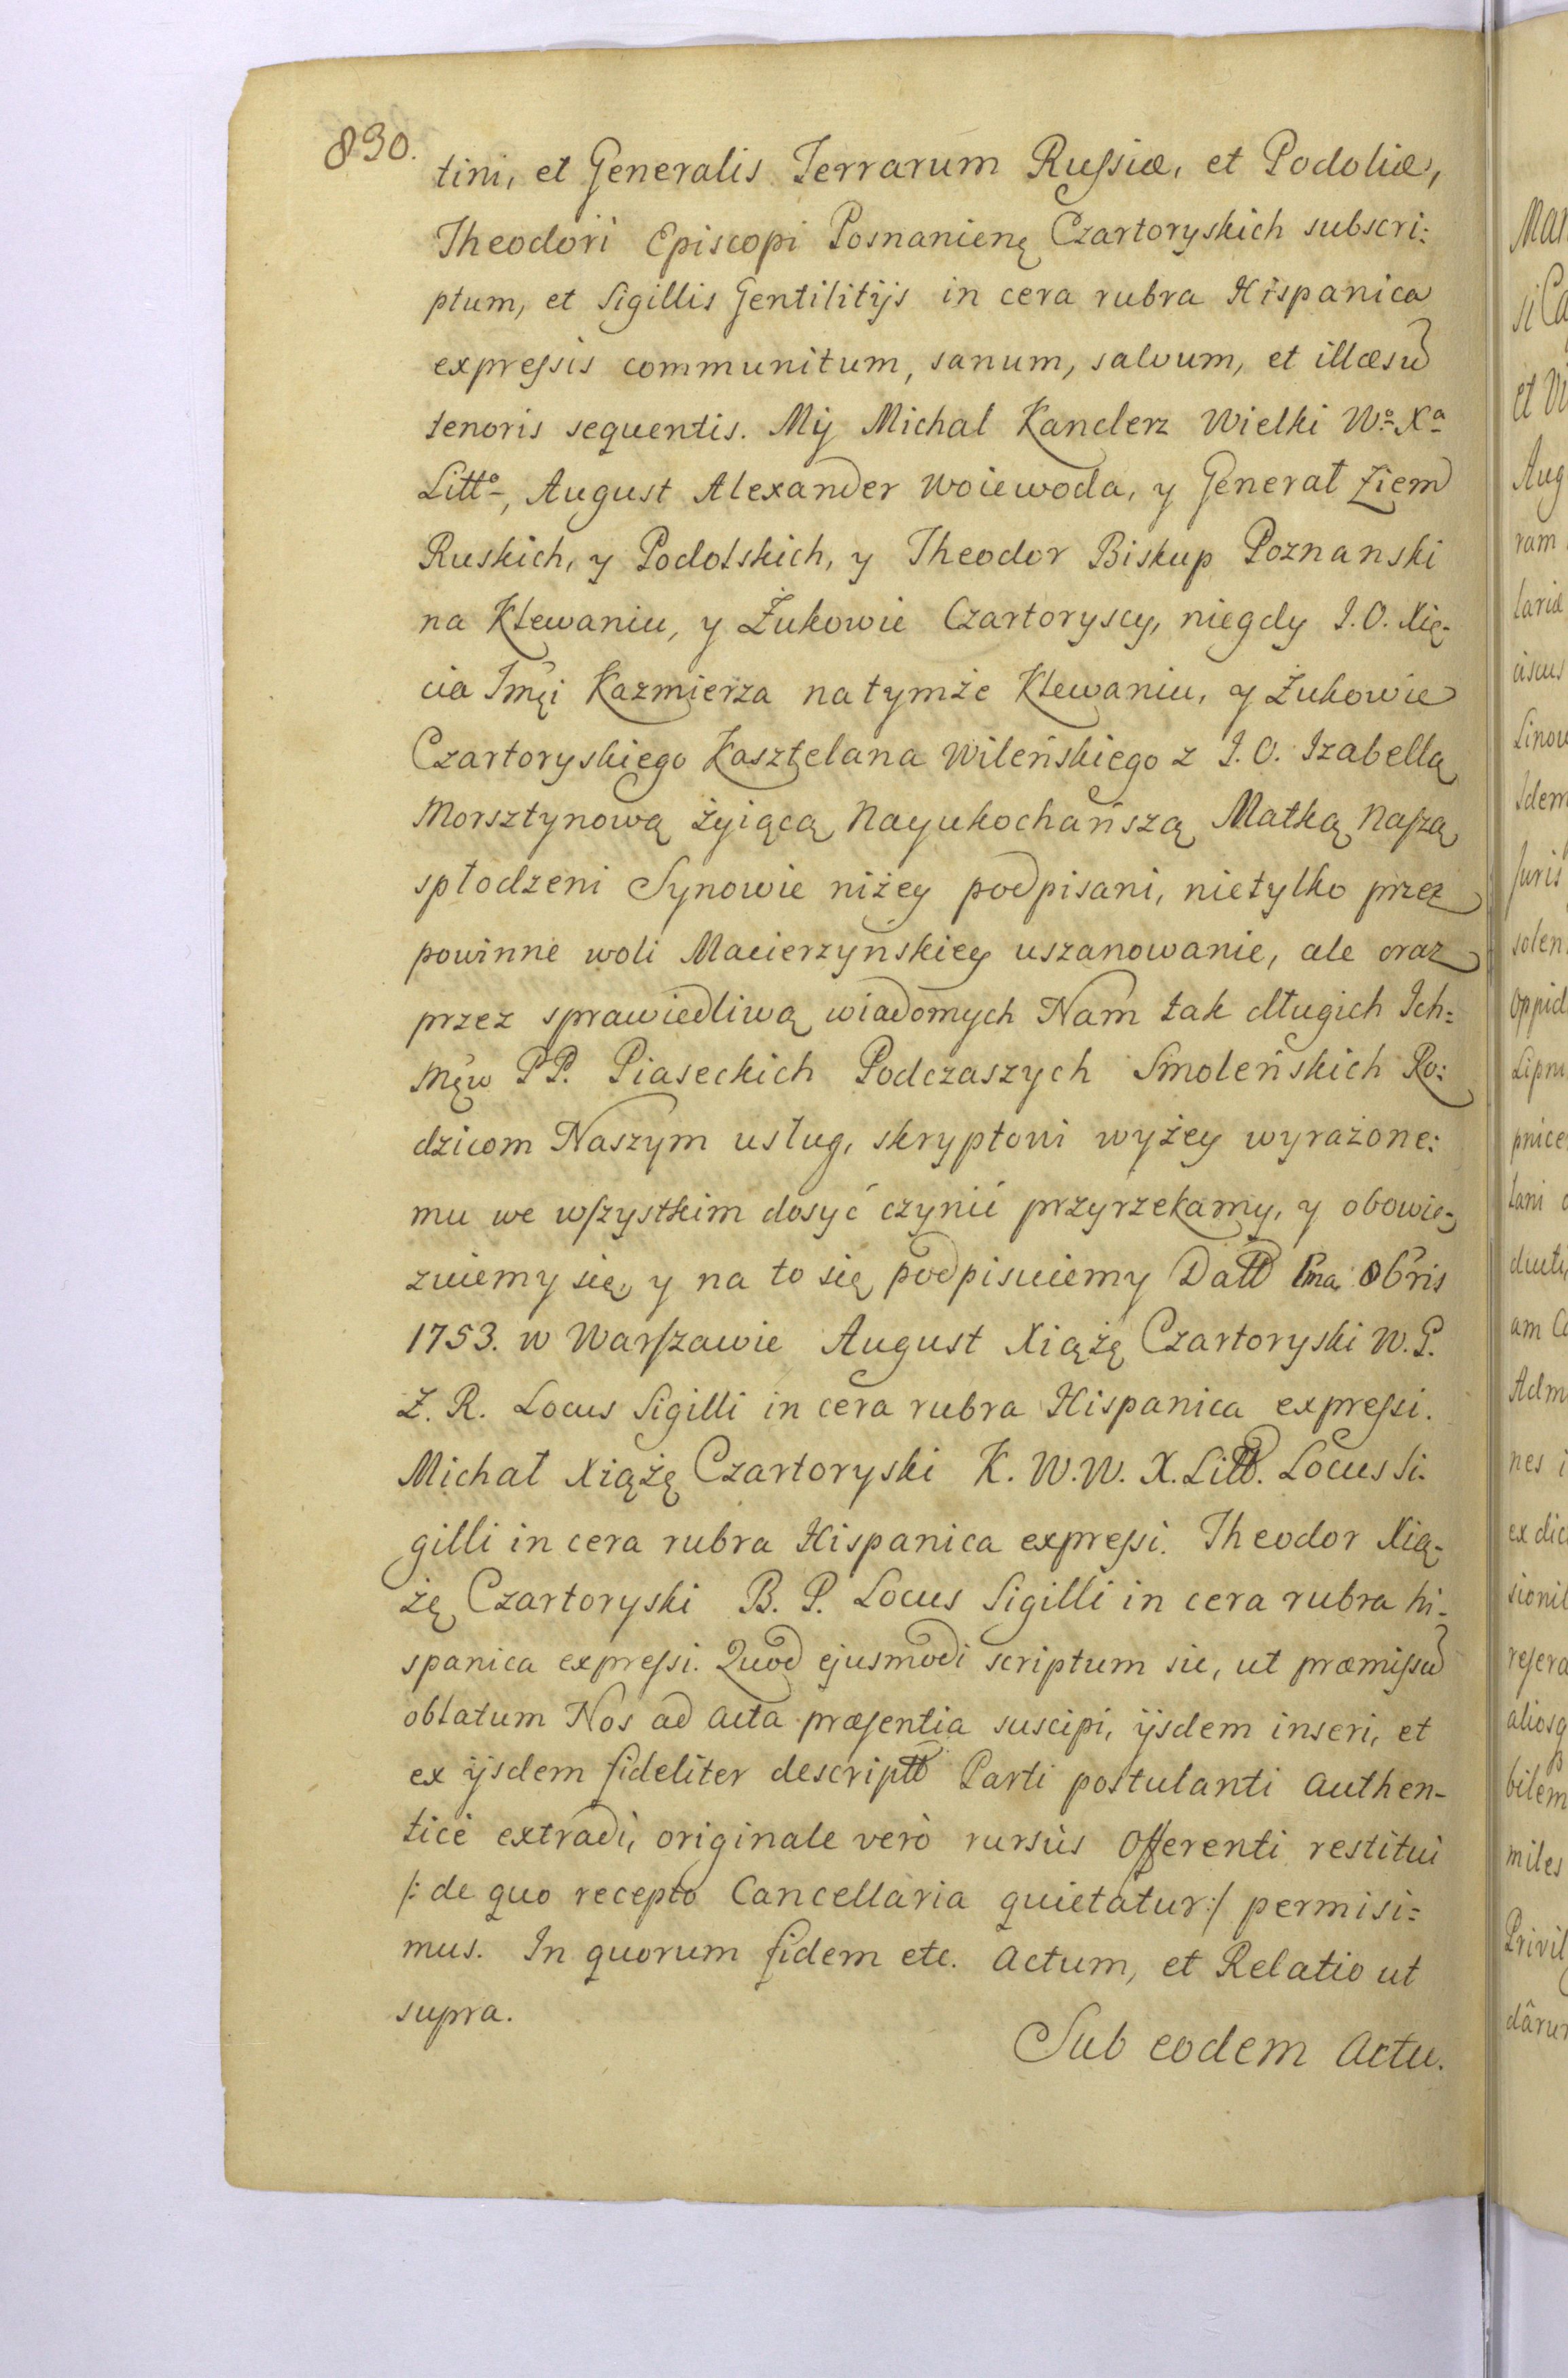 830.
tini, et Generalis Terrarum Rußiæ, et Podoliæ,
Theodori Episcopi Posnanienę Czartoryskich subscri:
ptum, et Sigillis Gentilitijs in cera rubra Hispanica
expreßis communitum, sanum, salvum, et illæsũ
tenoris sequentis. Mÿ Michal Kanclerz Wielki Wº Xª
Littº, August Alexander Woiewoda, y Generał Ziem
Ruskich, y Podolskich, y Theodor Biskup Poznanski
na Klewaniu, y Żukowie Czartoryscy, niegdy J. O. Xię-
cia Jmęi Kazmierza na tymże Klewaniu, y Żukowie
Czartoryskiego Kasztelana Wileńskiego z J. O. Izabellą
Morsztynową żyiącą Nayukochańszą Matką Naszą
spłodzeni Synowie niżey podpisani, nietylko przez
powinne woli Macierzyńskiey uszanowanie, ale oraz
przez sprawiedliwą wiadomych Nam tak długich Ich:
Męw PP. Piaseckich Podczaszych Smoleńskich Ro:
dzicom Naszym usług, skryptowi wyżey wyrażone:
mu we wszystkim dosyć czynić przyrzekamy, y obowię-
zuiemy się, y na to się podpisuiemy Datt 1ma obris
1753. w Warszawie August Xiążę Czartoryski W. G.
Z. R. Locus Sigilli in cera rubra Hispanica expreßi.
Michał Xiążę Czartoryski K. W. W. X. Litt. Locus Si-
gilli in cera rubra Hispanica expreßi. Theodor Xią-
żę Czartoryski B. P. Locus Sigilli in cera rubra hi-
spanica expreßi. Quod ejusmodi scriptum sic, ut præmißũ
oblatum Nos ad Acta præsentia suscipi, ijsdem inseri, et
ex ijsdem fideliter descriptt Parti postulanti authen-
ticè extradi, originale verò rursùs Offerenti restitui
/: de quo recepto Cancellaria quietatur :/ permisi=
mus. In quorum fidem etc. Actum, et Relatio ut
supra.
Sub eodem Actu.
Man
si Ca
et W
Aug
ram
lariæ
Linow
Idem
Juris
solen
oppid
Lipni
pnice
lani
am C
Adm
nes i
ex dic
sionib
resera
aliosq
bilem
miles
Privil
dârum